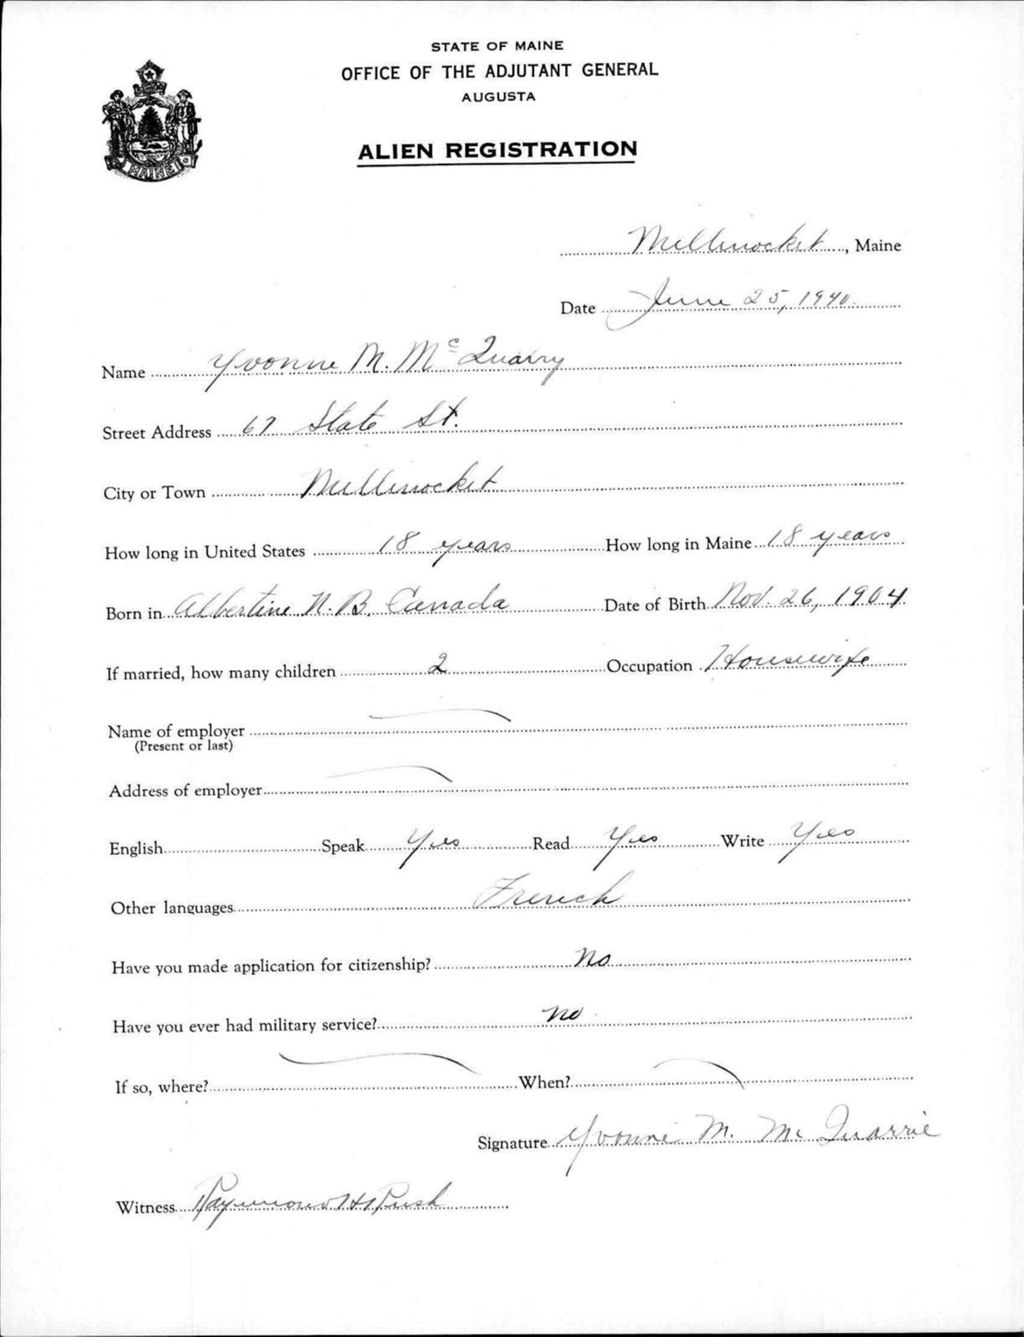 STATE OF MAINE
OFFICE OF THE ADJUTANT GENERAL
AUGUSTA
ALIEN REGISTRATION
MAINE
Millinocket, Maine
Date June 25, 1940.
Name Yvonne M. McQuarry
Street Address 67 State St.
City or Town Millinocket
How long in United States 18 years How long in Maine 18 years
Born in Albertine N.B. Canada Date of Birth Nov. 26, 1904
If married, how many children 2 Occupation Housewife
Name of employer
(Present or last)
Address of employer
English Speak Yes Read Yes Write Yes
Other languages French
Have you made application for citizenship? No
Have you ever had military service? no
If so, where? When?
Signature Yvonne M. Mc Quarrie
Witness Raymond H Rush